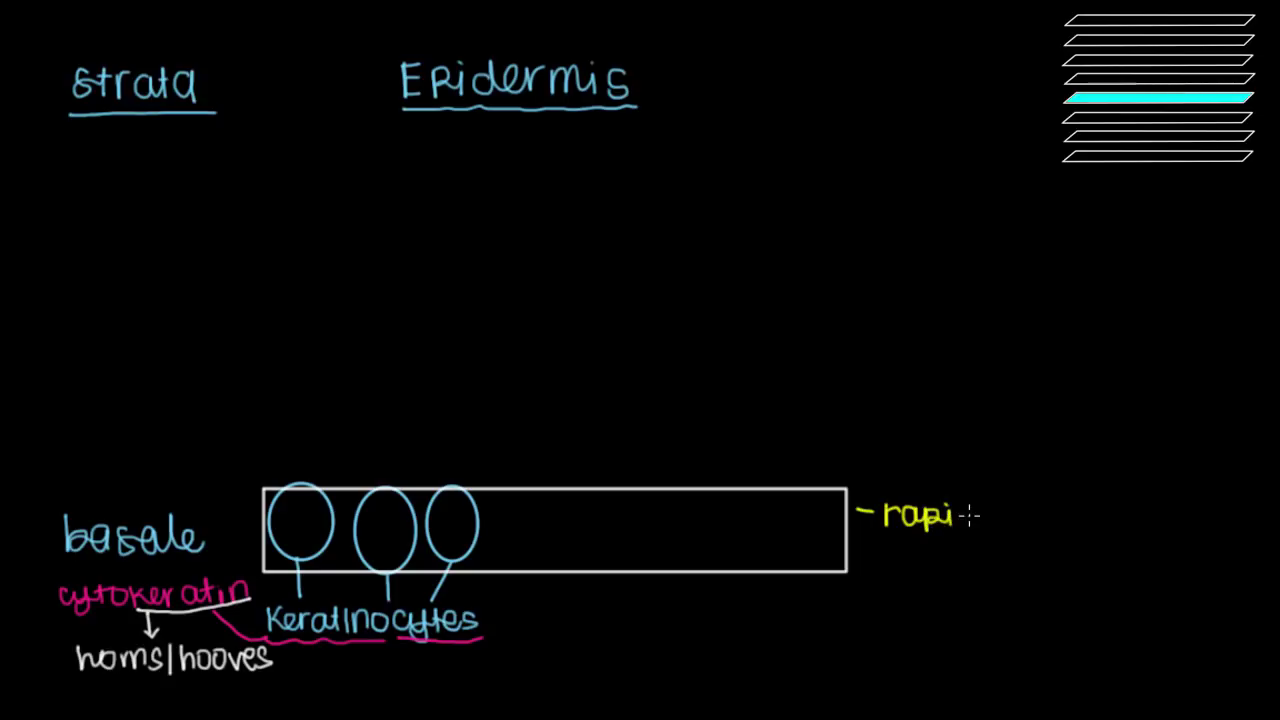 strata
Epidermis
basale
- rapi
cytokeratin
keratinocytes
horns/hooves